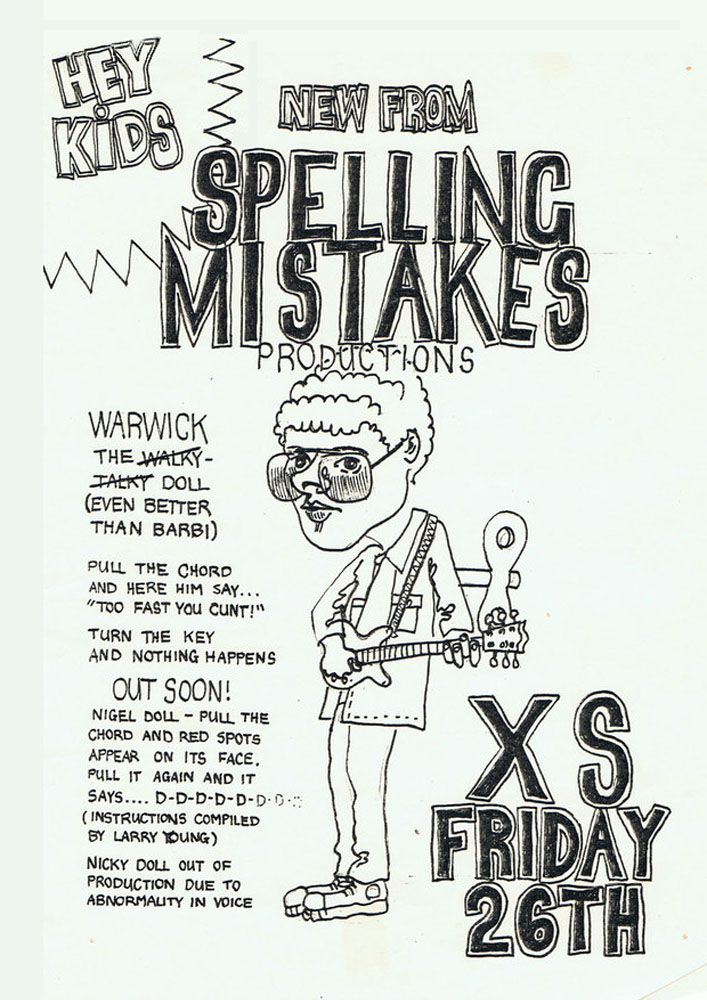 HEY
KiDS
NEW FROM
SPELLING
MISTAKES
PRODUCTIONS
WARWICK
THE WALKY-
TALKY DOLL
(EVEN BETTER
THAN BARBI)
PULL THE CHORD
AND HERE HIM SAY...
"TOO FAST YOU CUNT!"
TURN THE KEY
AND NOTHING HAPPENS
OUT SOON!
NIGEL DOLL - PULL THE
CHORD AND RED SPOTS
APPEAR ON ITS FACE.
PULL IT AGAIN AND IT
SAYS.... D-D-D-D-D-D-D-D
(INSTRUCTIONS COMPILED
BY LARRY YOUNG)
NICKY DOLL OUT OF
PRODUCTION DUE TO
ABNORMALITY IN VOICE
XS
FRIDAY
26TH